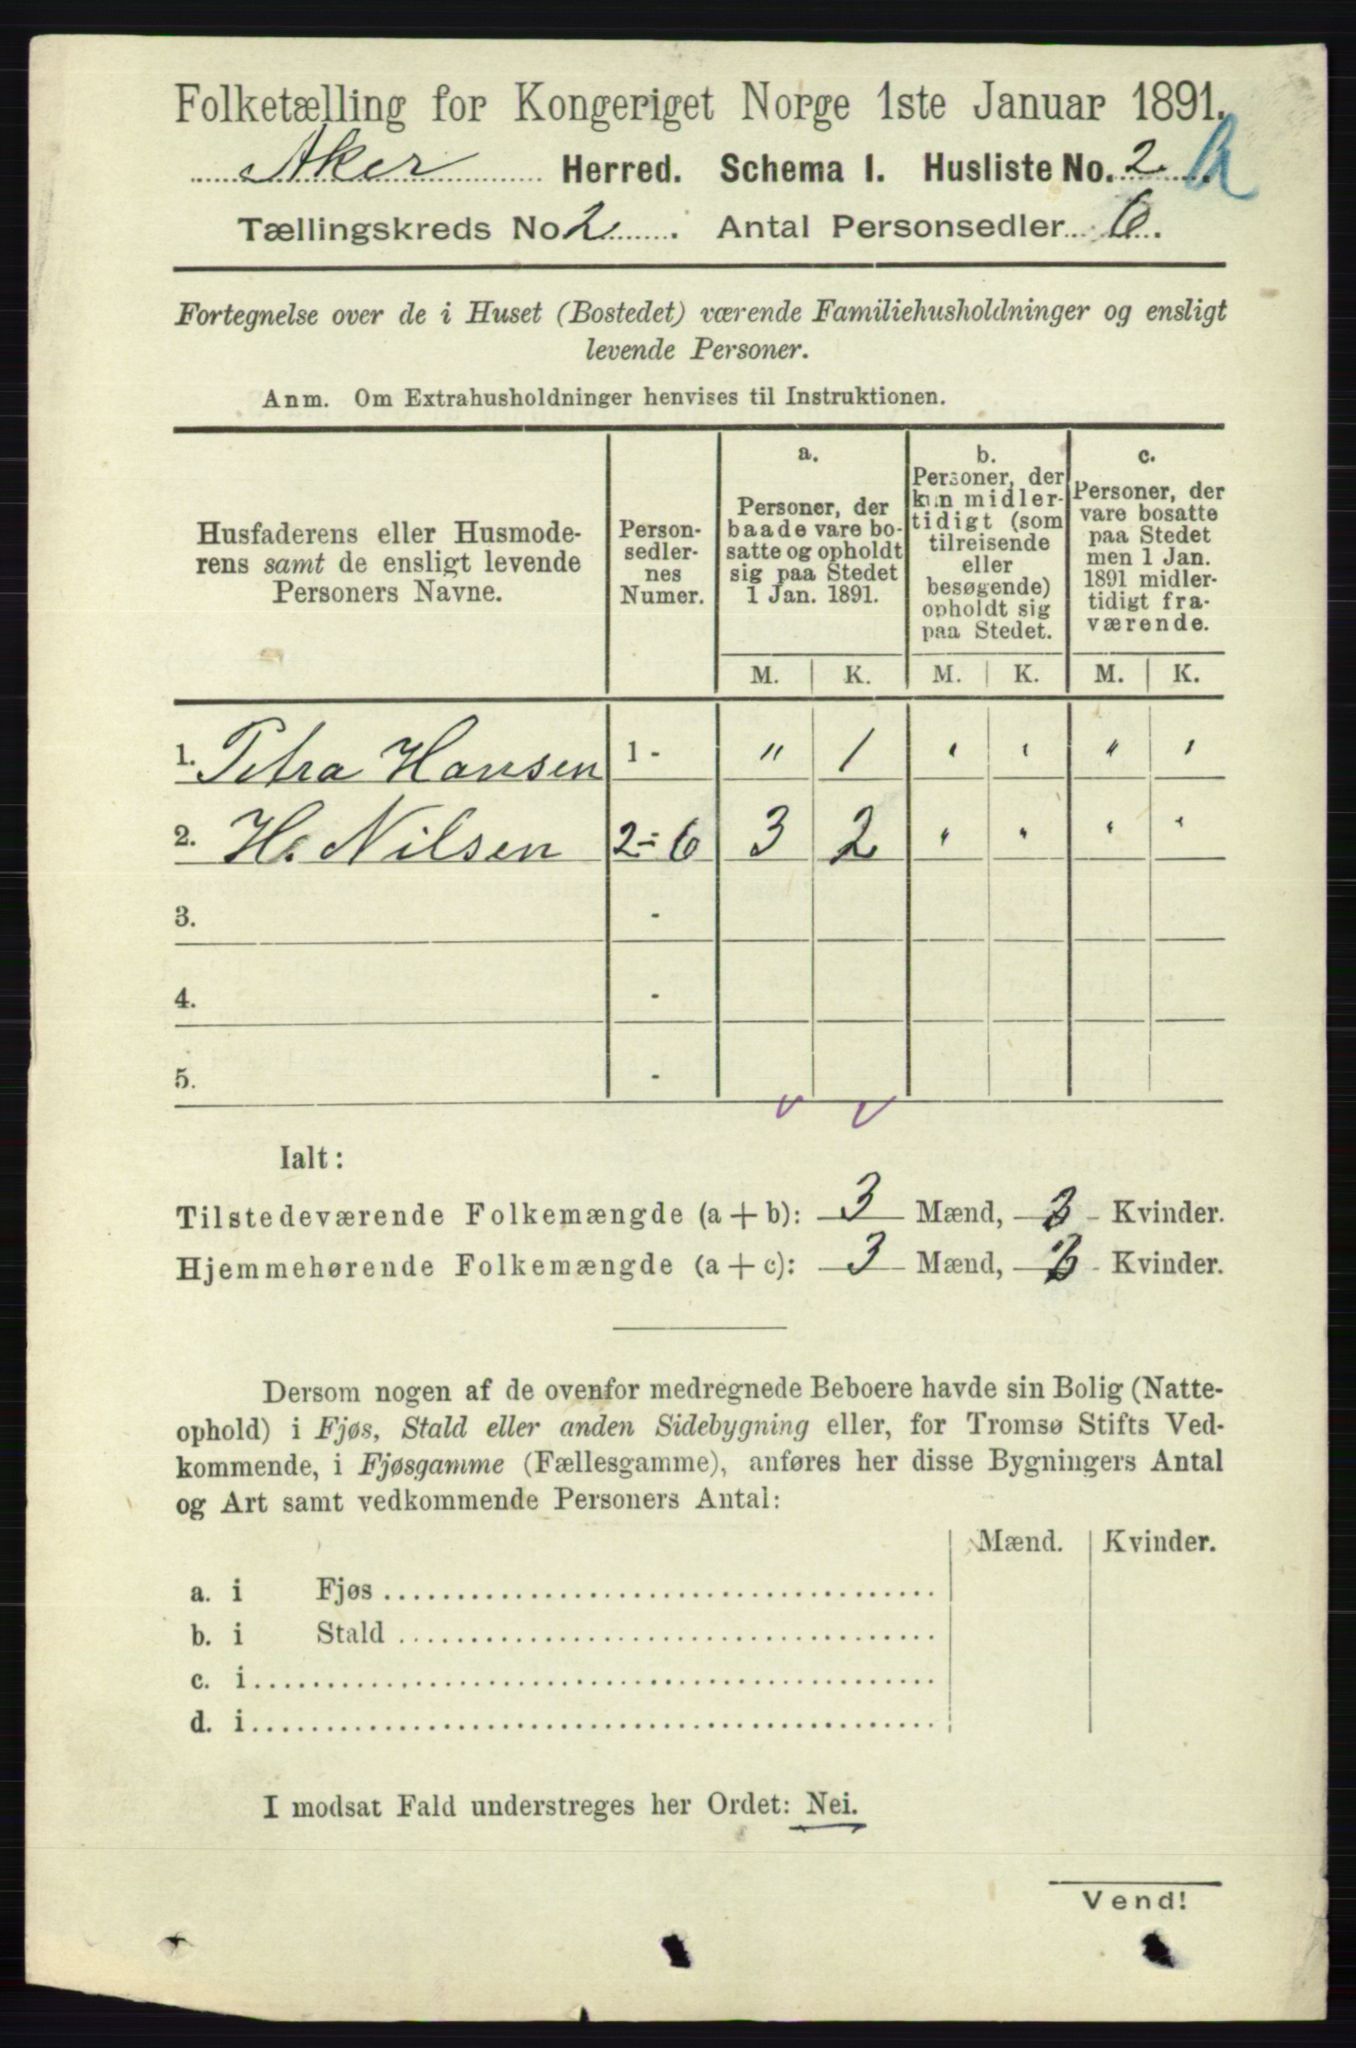 Folketælling for Kongeriget Norge 1ste Januar 1891.
Aker Herred. Schema I. Husliste No. 2
Tællingskreds No 2. Antal Personsedler 6.
Fortegnelse over de i Huset (Bostedet) værende Familiehusholdninger og ensligt
levende Personer.
Anm. Om Extrahusholdninger henvises til Instruktionen.
Husfaderens eller Husmode-
rens samt de ensligt levende
Personers Navne.
Person-
sedler-
nes
Numer.
a.
Personer, der
baade vare bo-
satte og opholdt
sig paa Stedet
1 Jan. 1891.
b.
Personer, der
kun midler-
tidigt (som
tilreisende
eller
besøgende)
opholdt sig
paa Stedet.
c.
Personer, der
vare bosatte
paa Stedet
men 1 Jan.
1891 midler-
tidigt fra-
værende.
M. K. M. K. M. K.
1. Petra Hansen 1 - " 1 " " " "
2. H. Nilsen 2-6 3 2 " " " "
3. -
4. -
5. -
Ialt:
Tilstedeværende Folkemængde (a + b): 3 Mænd, 3 Kvinder.
Hjemmehørende Folkemængde (a + c): 3 Mænd, 3 Kvinder.
Dersom nogen af de ovenfor medregnede Beboere havde sin Bolig (Natte-
ophold) i Fjøs, Stald eller anden Sidebygning eller, for Tromsø Stifts Ved-
kommende, i Fjøsgamme (Fællesgamme), anføres her disse Bygningers Antal
og Art samt vedkommende Personers Antal:
Mænd. Kvinder.
a. i Fjøs
b. i Stald
c. i
d. i
I modsat Fald understreges her Ordet: Nei.
Vend!